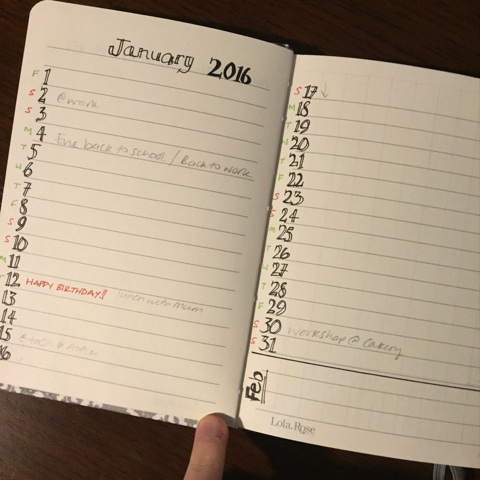 January 2016
F 1
S 2 @work
S 3
M 4 Eve back to school / Back to work
T 5
W 6
T 7
F 8
S 9
S 10
M 11
T 12 HAPPY BIRTHDAY!! lunch with mum
13
14
15
16
S 17 ↓
M 18
T 19
W 20
T 21
F 22
S 23
S 24
M 25
T 26
W 27
T 28
F 29
S 30 workshop @ Cakery
S 31
Feb
Lola Rose